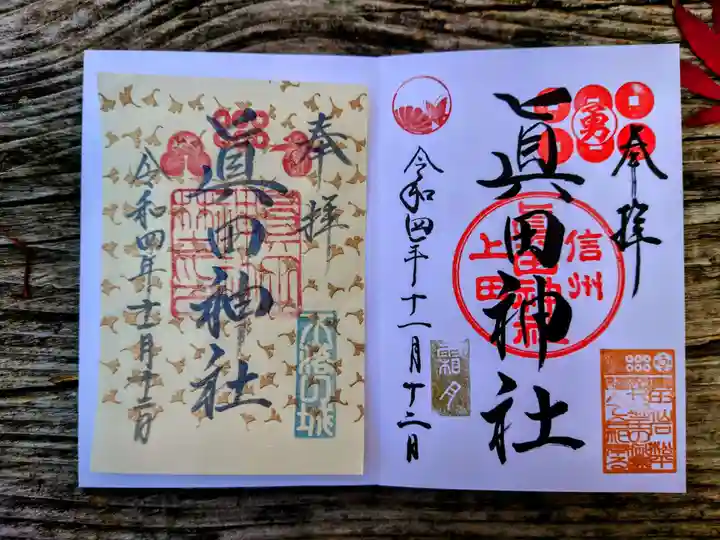 奉拝
勇
眞田神社
信州
上田
令和四年十一月十二月
霜月
奉拝
眞田神社
不落の城
令和四年十一月十二日